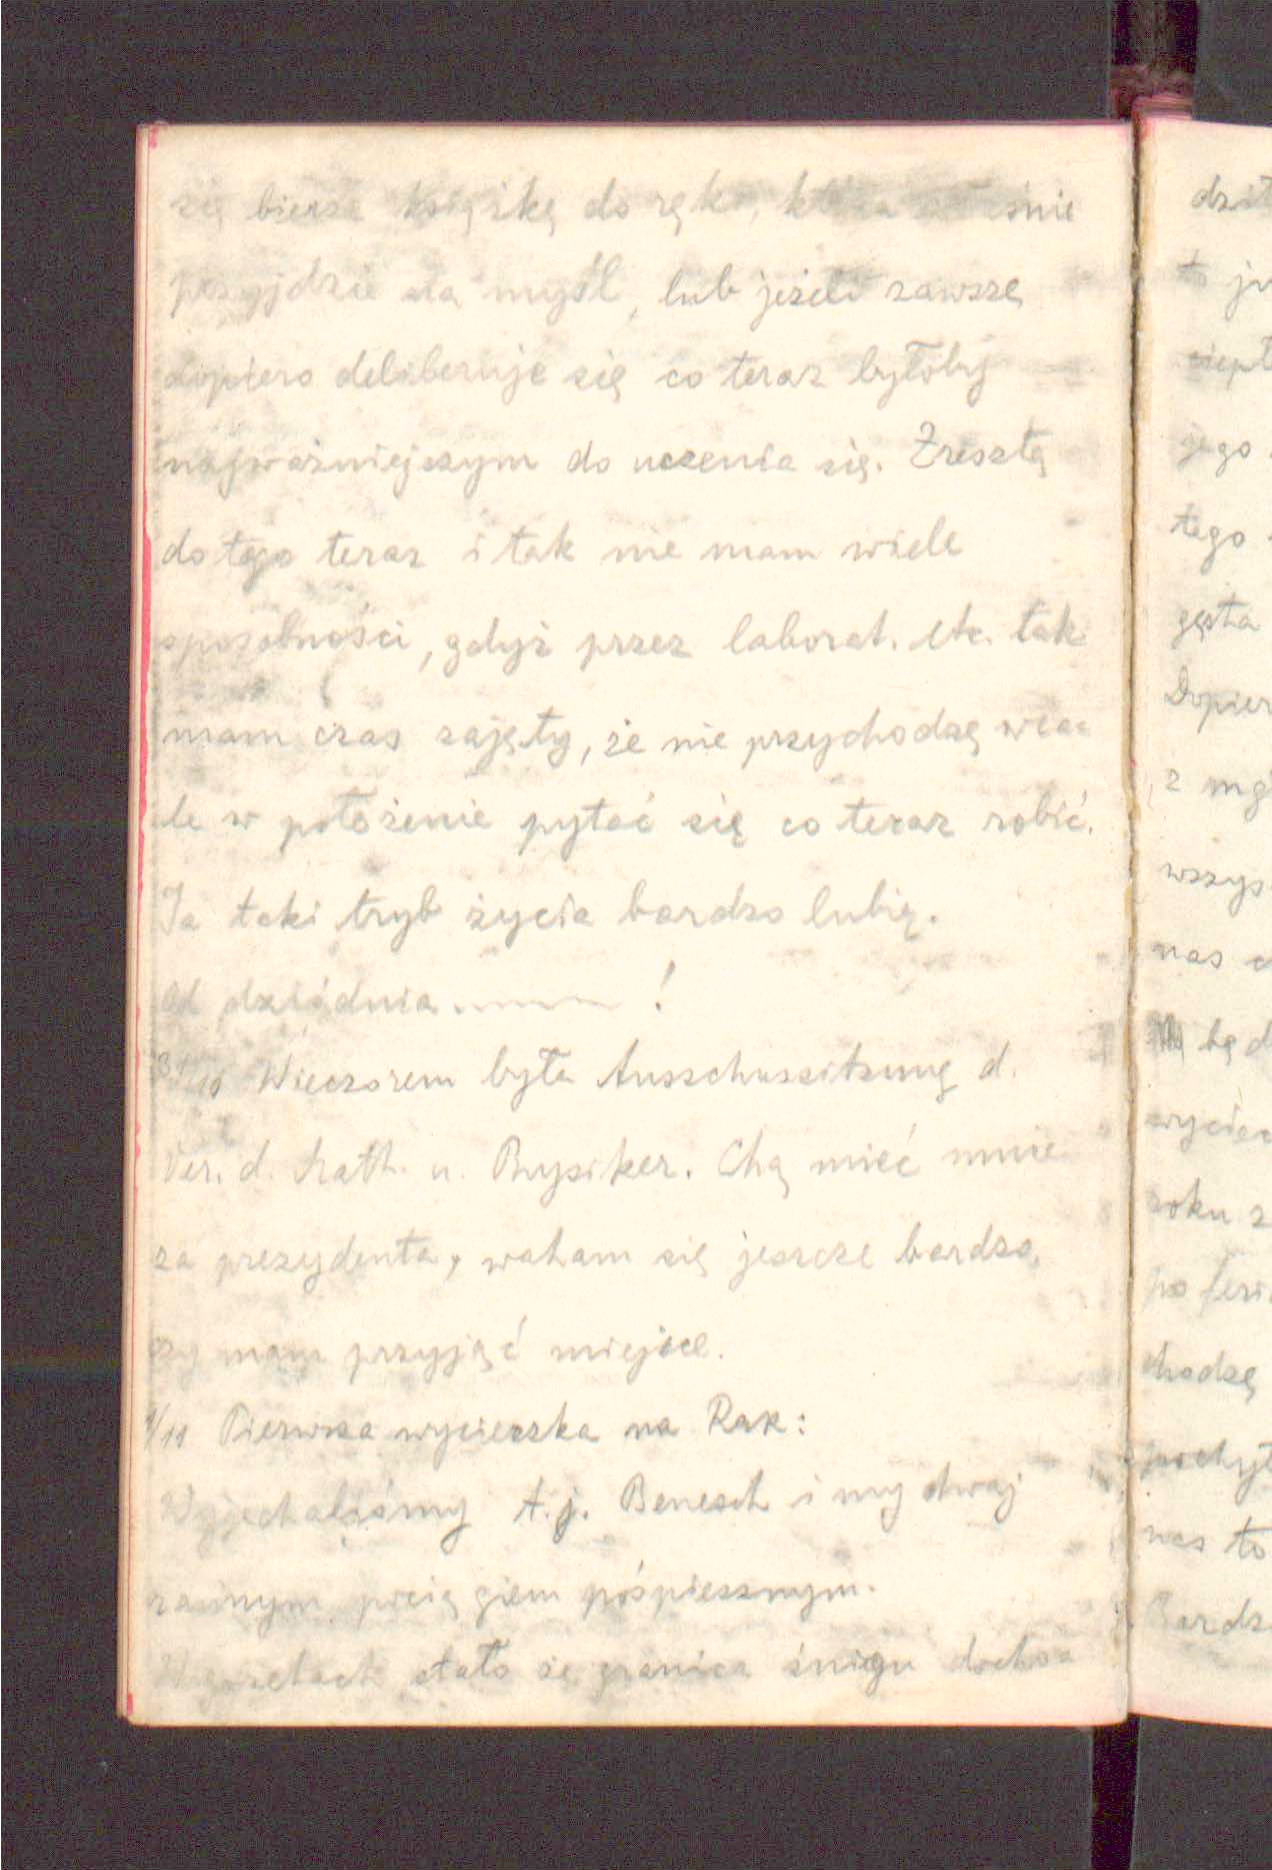 się bierze książkę do ręki, która właśnie
przyjdzie na myśl, lub jeżeli zawsze
dopiero deliberuje się co teraz byłoby
najważniejszym do uczenia się. Zresztą
do tego teraz i tak nie mam wiele
sposobności, gdyż przez laborat. etc. tak
mam czas zajęty, że nie przychodzę wca=
le w położenie pytać się co teraz robić.
Ja taki tryb życia bardzo lubię.
Od dziśdnia !
31/10 Wieczorem była Ausschussitzung d.
Ver. d. Math. u. Physiker. Chą mieć mnie
za prezydenta, waham się jeszcze bardzo,
czy mam przyjąć miejsce.
1/11 Pierwsza wycieczka na Rax:
Wyjechaliśmy t.j. Benesch i my dwaj
rannym pociągiem pośpiesznym.
W gazetach stało że granica śniegu docho=
dził
to
ciepł
jego
tego
gęsta
Dopier
z mg
wszys
nas
będ
wyciec
roku z
po feri
chodzę
nas to
Bardz